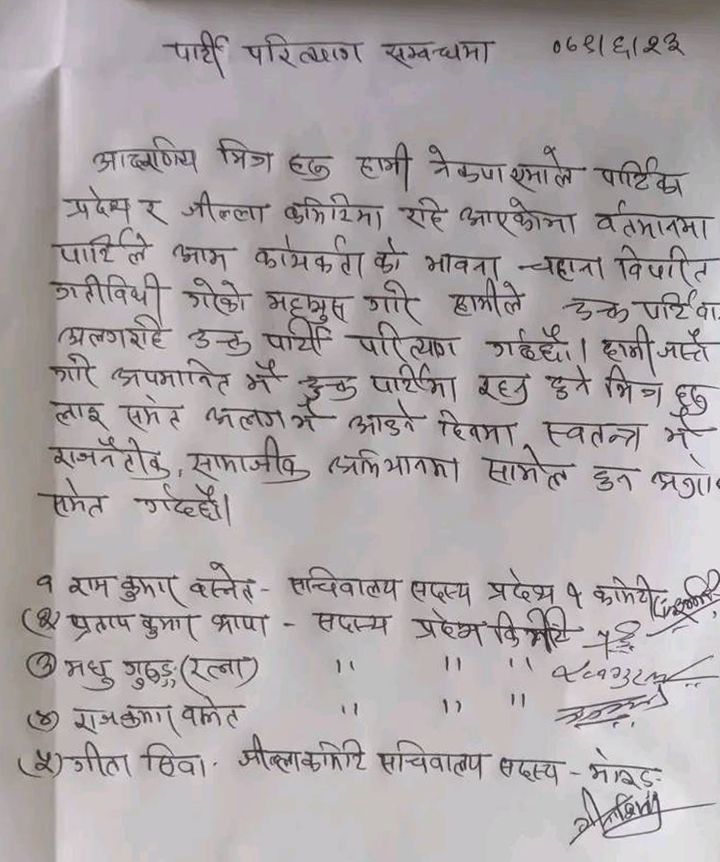 पार्टी परित्याग सम्वन्धमा ०७९/६/२३
आदरणिय मित्र हरु हामी नेकपा एमाले पार्टिका
प्रदेश र जील्ला कमिटिमा रहि आएकोमा वर्तमानमा
पार्टिले आम कार्यकर्ता को भावना चहाना विपरित
गतीविधी गरेको महशुस गरि हामीले उक्त पार्टिवा
अलगरहि उक्त पार्टी परित्याग गर्दछौं। हामी जस्तै
गरि अपमानित भै उक्त पार्टिमा रहनु हुने मित्र हरु
लाइ समेत अलग भै आउने दिनमा स्वतन्त्र भै
राजनैतीक, सामाजीक अभियानमा सामेल हुन
समेत गर्दछौं।
१ राम कुमार वस्नेत - सचिवालय सदस्य प्रदेश १ कमिटी
(२) प्रताप कुमार थापा - सदस्य प्रदेश कमिटि
(३) मधु गुरुङ (रत्ना) " " "
(४) राजकुमार वस्नेत " " "
(५) गीता सिवा. जील्लाकमिटि सचिवालय सदस्य - मोरङ